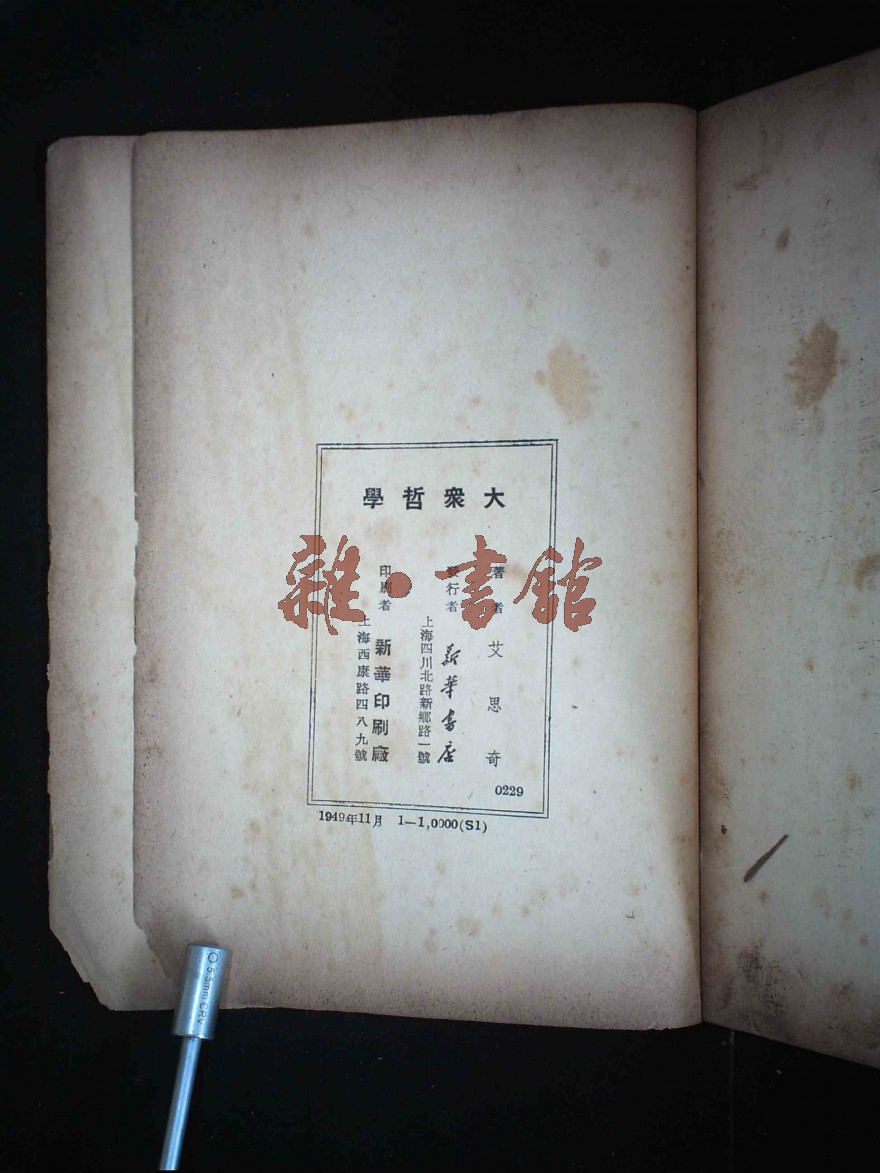 大衆哲學
著者 艾思奇
發行者 新華書店
上海四川北路新鄉路一號
印刷者 新華印刷廠
上海西康路四八九號
0229
1949年11月 1—1,0000(S1)
雜·書館
5.5mm CRV